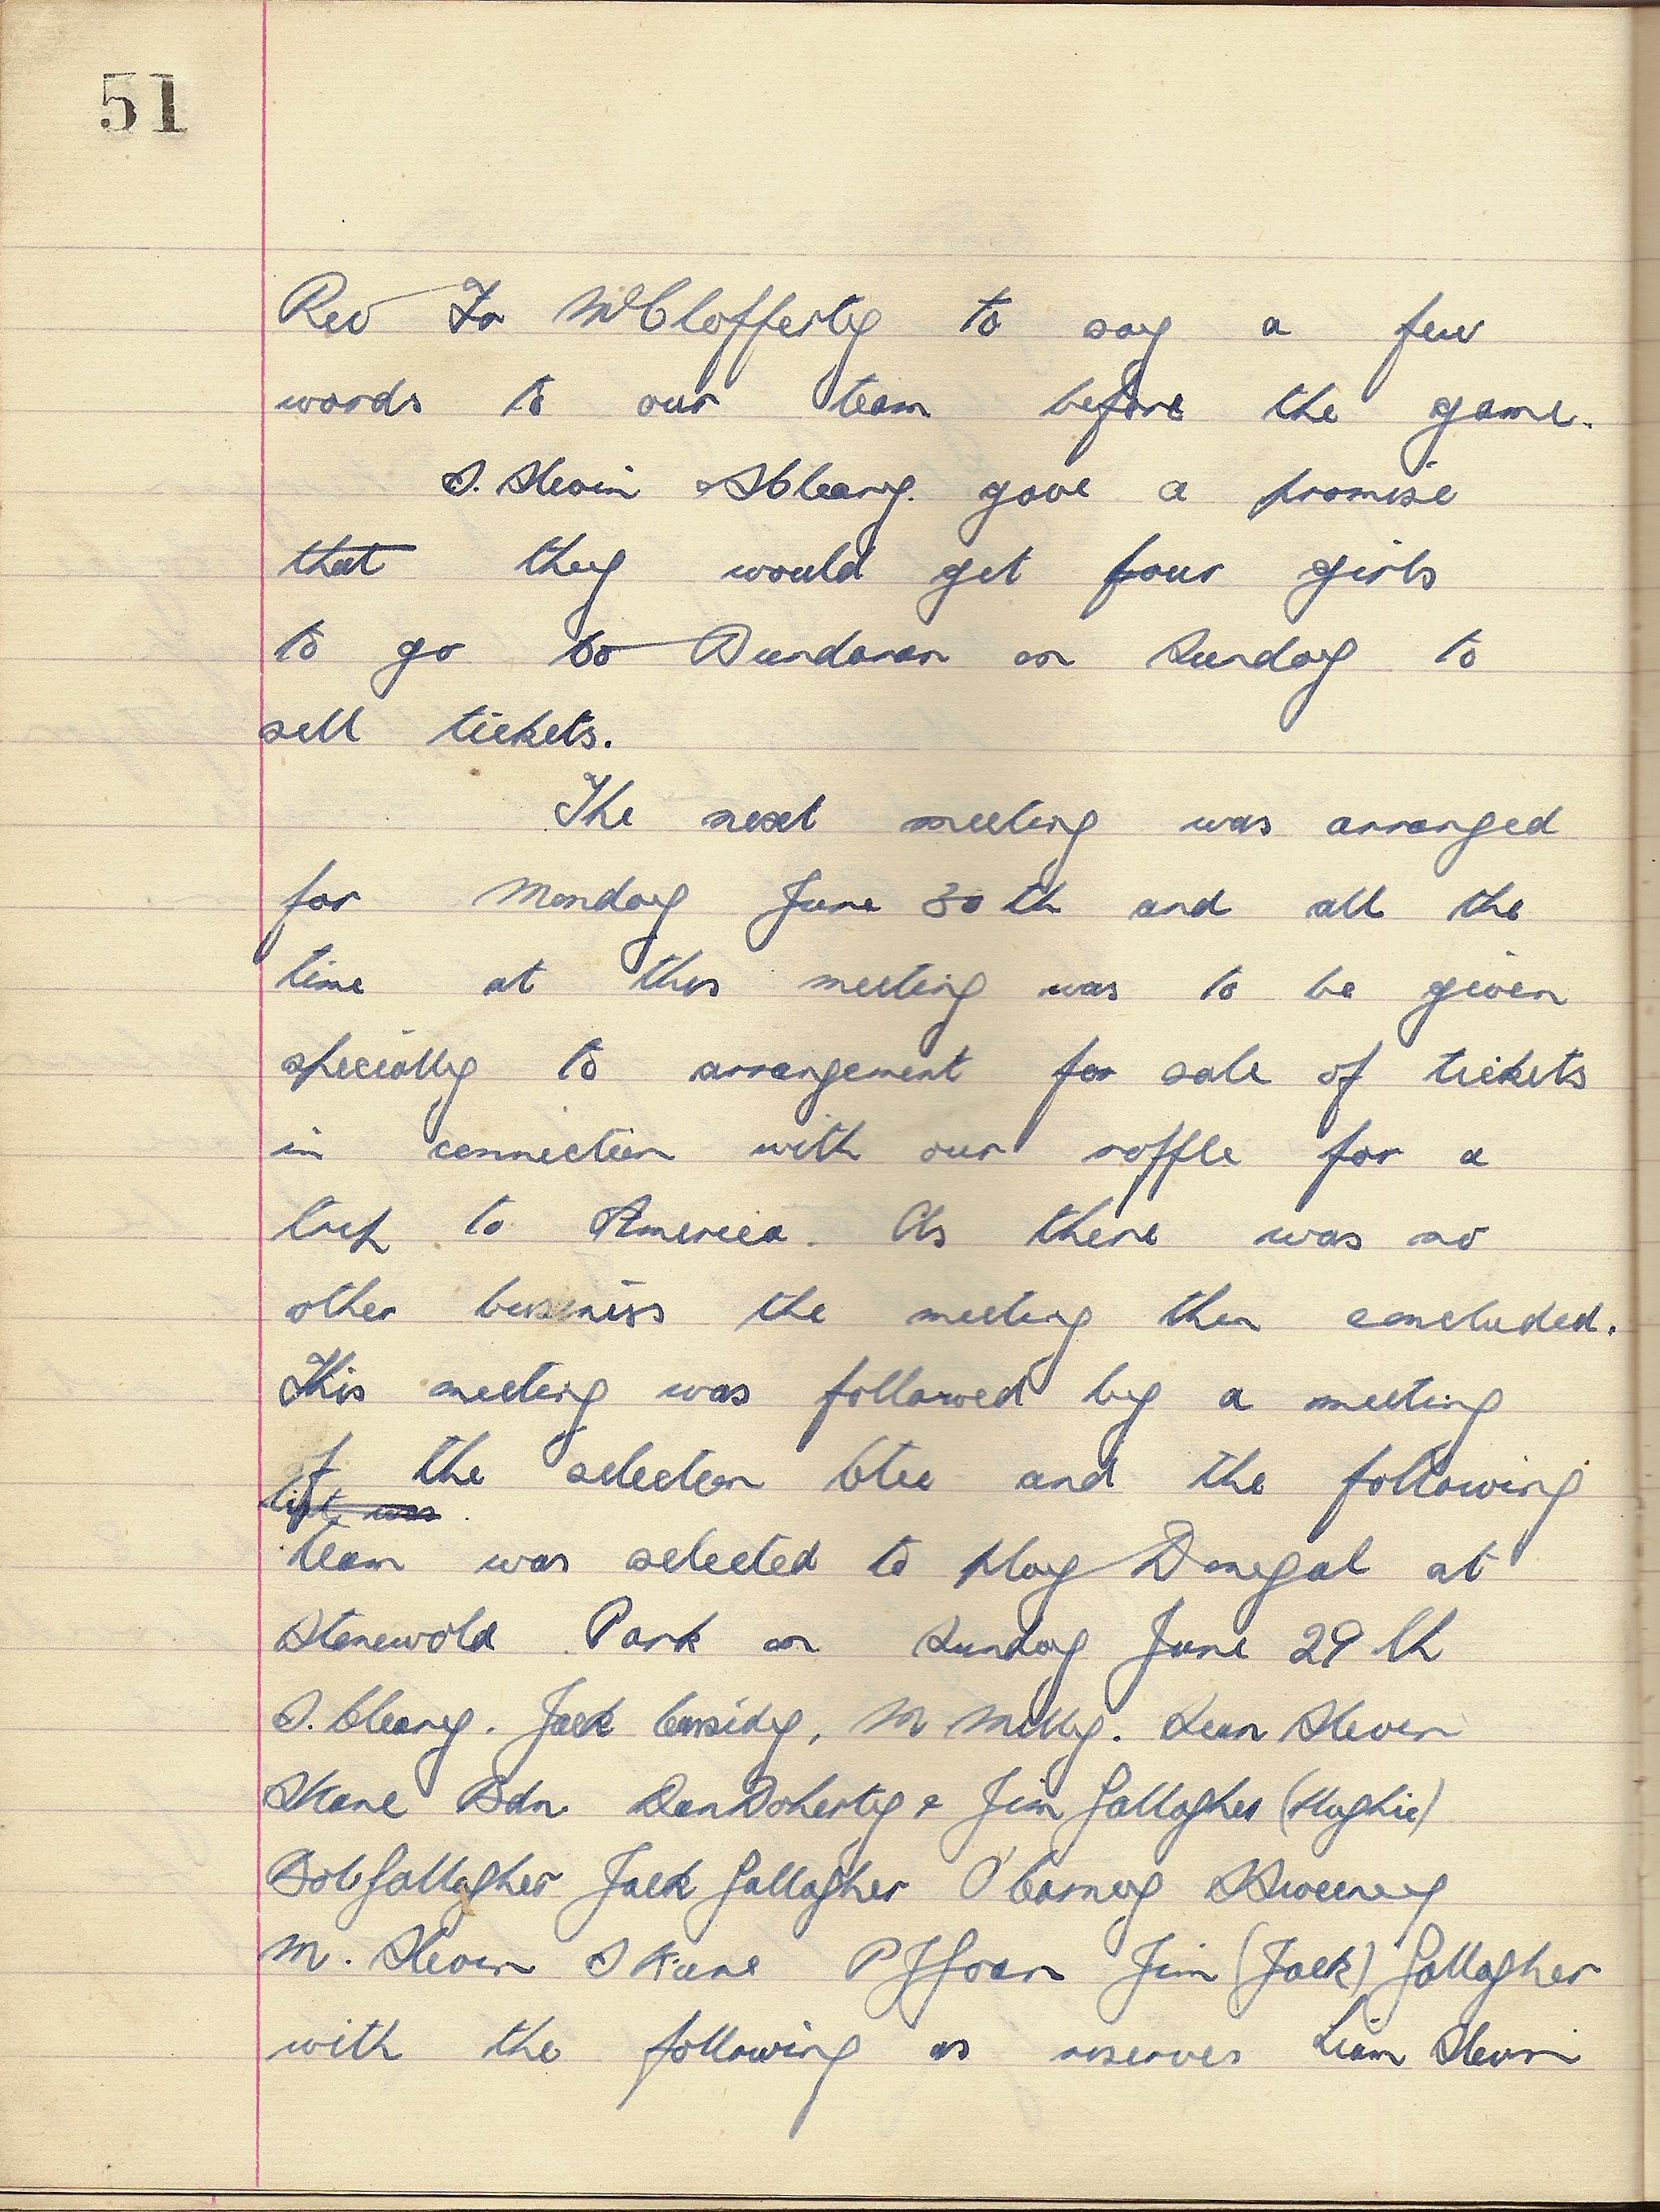 51
Rev Fr McClafferty to say a few
words to our team before the game.
S. Slevin & S Cleary. gave a promise
that they would get four girls
to go to Bundoran on Sunday to
sell tickets.
The next meeting was arranged
for Monday June 30th and all the
time at this meeting was to be given
specially to arrangement for sale of tickets
in connection with our raffle for a
trip to America. As there was no
other business the meeting then concluded.
This meeting was followed by a meeting
of the selection Ctee and the following
list was
team was selected to play Donegal at
Stonewold Park on Sunday June 29th
S. Cleary. Jack Cassidy, M Melly. Sean Slevin
Skane Bdn Dan Doherty & Jim Gallagher (Hughie)
Bob Gallagher Jack Gallagher O'Carney S Sweeney
M. Slevin S Kane P J Goan Jim (Jack) Gallagher
with the following as reserves Liam Slevin